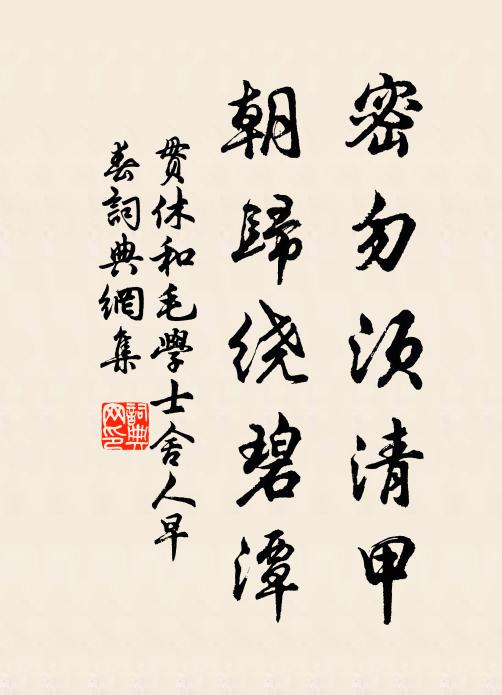 密勿须清甲
朝歸绕碧潭
贯休和毛學士舍人早
春詞典網集
詞典
网印